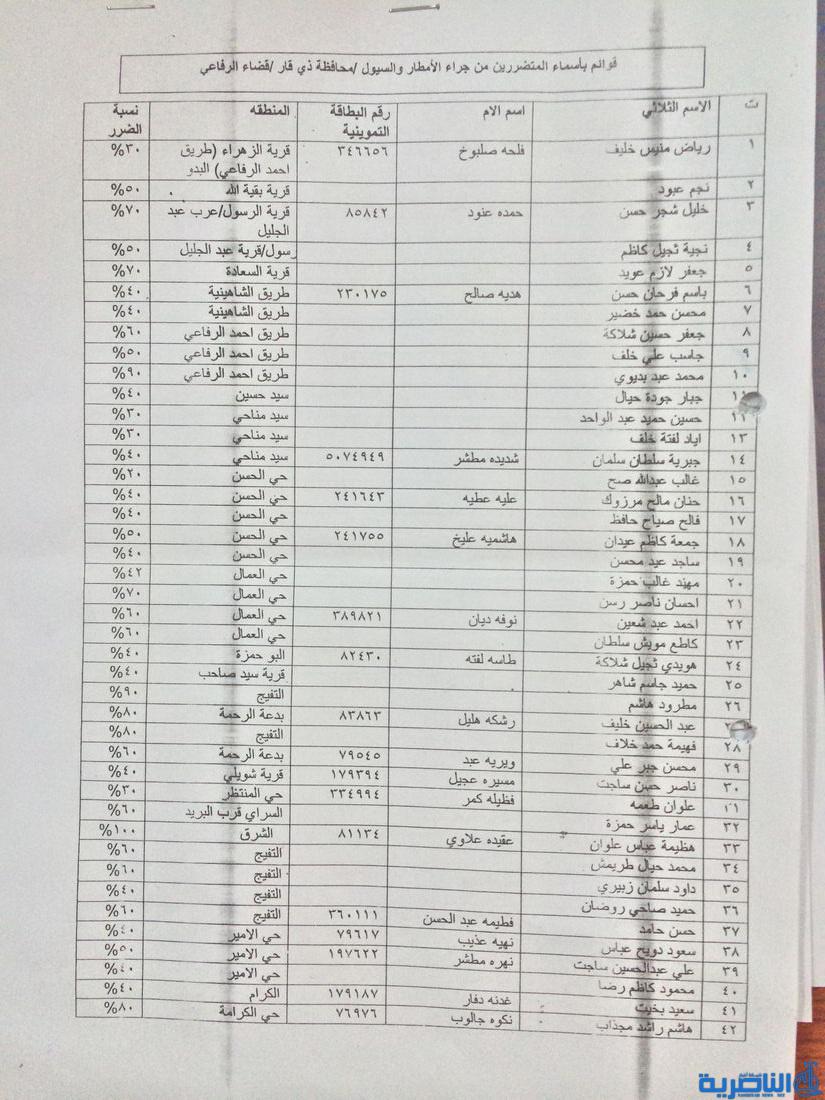 قوائم بأسماء المتضررين من جراء الأمطار والسيول /محافظة ذي قار /قضاء الرفاعي
ت الاسم الثلاثي اسم الام رقم البطاقة التموينية المنطقه نسبة الضرر
١ رياض منيس خليف فلحه صلبوخ ٣٤٦٦٥٦ قرية الزهراء (طريق احمد الرفاعي) البدو ٣٠%
٢ نجم عبود قرية بقية الله ٥٠%
٣ خليل شجر حسن حمده عنود ٨٥٨٤٢ قرية الرسول/عرب عبد الجليل ٧٠%
٤ نجية ثجيل كاظم رسول/قرية عبد الجليل ٥٠%
٥ جعفر لازم عويد قرية السعادة ٧٠%
٦ باسم فرحان حسن هديه صالح ٢٣٠١٧٥ طريق الشاهينية ٤٠%
٧ محسن حمد خضير طريق الشاهينية ٤٠%
٨ جعفر حسين شلاكة طريق احمد الرفاعي ٦٠%
٩ جاسب علي خلف طريق احمد الرفاعي ٥٠%
١٠ محمد عبد بديوي طريق احمد الرفاعي ٩٠%
جبار جودة حيال سيد حسين ٤٠%
حسين حميد عبد الواحد سيد مناحي ٣٠%
١٣ اياد لفتة خلف سيد مناحي ٣٠%
١٤ جبرية سلطان سلمان شديده مطشر ٥٠٧٤٩٤٩ سيد مناحي ٤٠%
١٥ غالب عبدالله صح حي الحسن ٢٠%
١٦ حنان مالح مرزوك عليه عطيه ٢٤١٦٤٣ حي الحسن ٤٠%
١٧ فالح صياح حافظ حي الحسن ٤٠%
١٨ جمعة كاظم عيدان هاشميه عليخ ٢٤١٧٥٥ حي الحسن ٥٠%
١٩ ساجد عيد محسن حي الحسن ٤٠%
٢٠ مهند غالب حمزة حي العمال ٤٢%
٢١ احسان ناصر رسن حي العمال ٧٠%
٢٢ احمد عبد شعين نوفه ديان ٣٨٩٨٢١ حي العمال ٦٠%
٢٣ كاطع مويش سلطان حي العمال ٦٠%
٢٤ هويدي ثجيل شلاكة طاسه لفته ٨٢٤٣٠ البو حمزة ٤٠%
٢٥ حميد جاسم شاهر قرية سيد صاحب ٤٠%
٢٦ مطرود هاشم التفيج ٩٠%
عبد الحسين خليف رشكه هليل ٨٣٨٦٣ بدعة الرحمة ٨٠%
٢٨ فهيمة حمد خلاف التفيج ٨٠%
٢٩ محسن جبر علي ويريه عبد ٧٩٥٤٥ بدعة الرحمة ٦٠%
٣٠ ناصر حسن ساجت مسيره عجيل ١٧٩٣٩٤ قرية شويلي ٤٠%
٣١ علوان طعمه فظيله كمر ٣٣٤٩٩٤ حي المنتظر ٣٠%
٣٢ عمار ياسر حمزة السراي قرب البريد ٦٠%
٣٣ هظيمة عباس علوان عقيده علاوي ٨١١٣٤ الشرق ١٠٠%
٣٤ محمد حيال طريمش التفيج ٦٠%
٣٥ داود سلمان زبيري التفيج ٦٠%
٣٦ حميد صاحي روضان التفيج ٤٠%
٣٧ حسن حامد فطيمه عبد الحسن ٣٦٠١١١ التفيج ٦٠%
٣٨ سعود دويح عباس نهيه عذيب ٧٩٦١٧ حي الامير ٤٠%
٣٩ علي عبدالحسين ساجت نهره مطشر ١٩٧٦٢٢ حي الامير ٥٠%
٤٠ محمود كاظم رضا حي الامير ٤٠%
٤١ سعيد بخيت غدنه دفار ١٧٩١٨٧ الكرام ٤٠%
٤٢ هاشم راشد مجذاب نكوه جالوب ٧٦٩٧٦ حي الكرامة ٨٠%
الناصرية